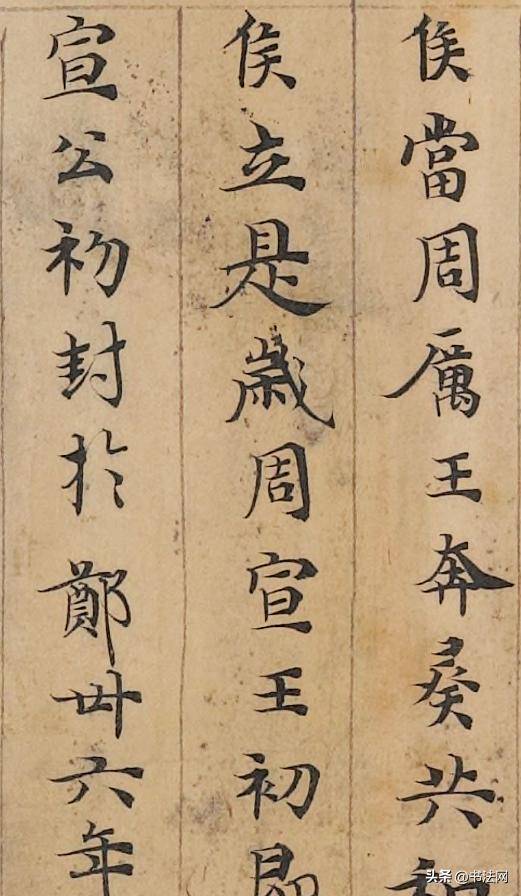 侯當周厲王奔彘共和
侯立是歲周宣王初即
宣公初封於鄭卅六年
头条 @书法网